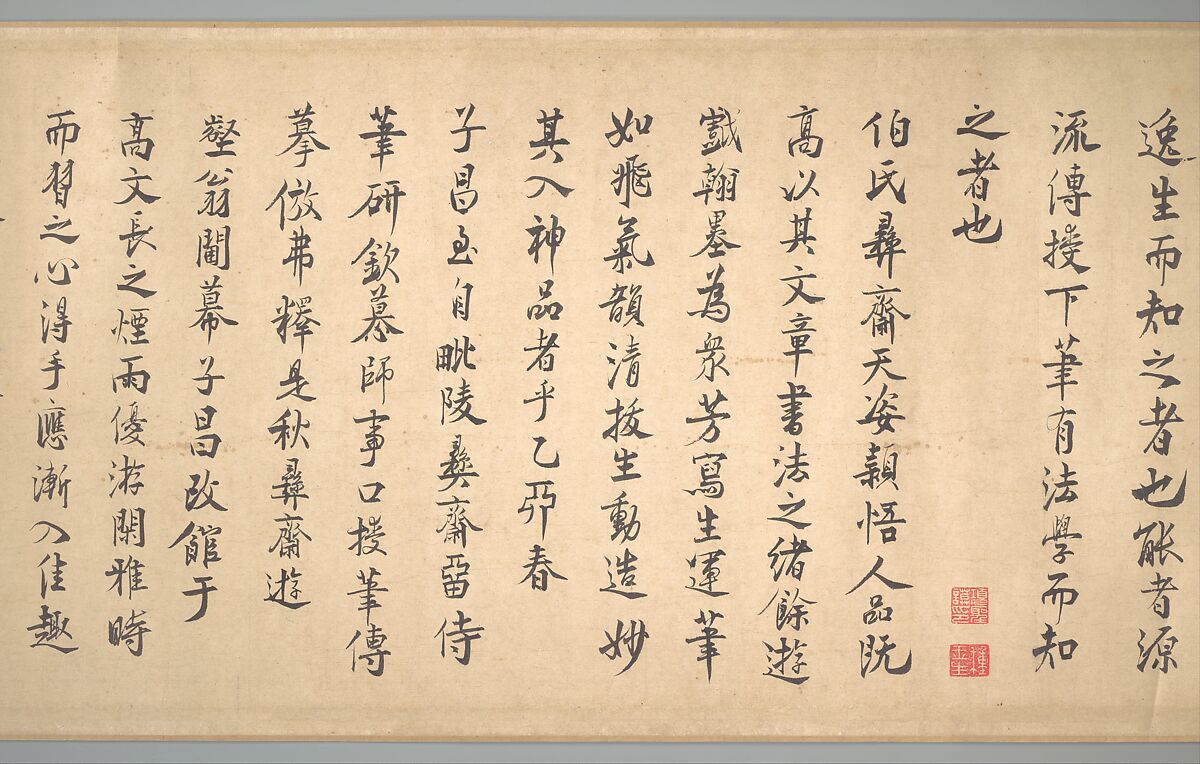 逸生而知之者也能者源
流傳授下筆有法學而知
之者也
伯氏彝齋天姿穎悟人品既
高以其文章書法之緒餘遊
戲翰墨為衆芳寫生運筆
如飛氣韻清拔生動造妙
其入神品者乎乙卯春
子昌至自毗陵彝齋留侍
筆研欽慕師事口授筆傳
摹倣弗釋是秋彝齋遊
壑翁閫幕子昌改館于
高文長之煙雨優游閑雅時
而習之心得手應漸入佳趣